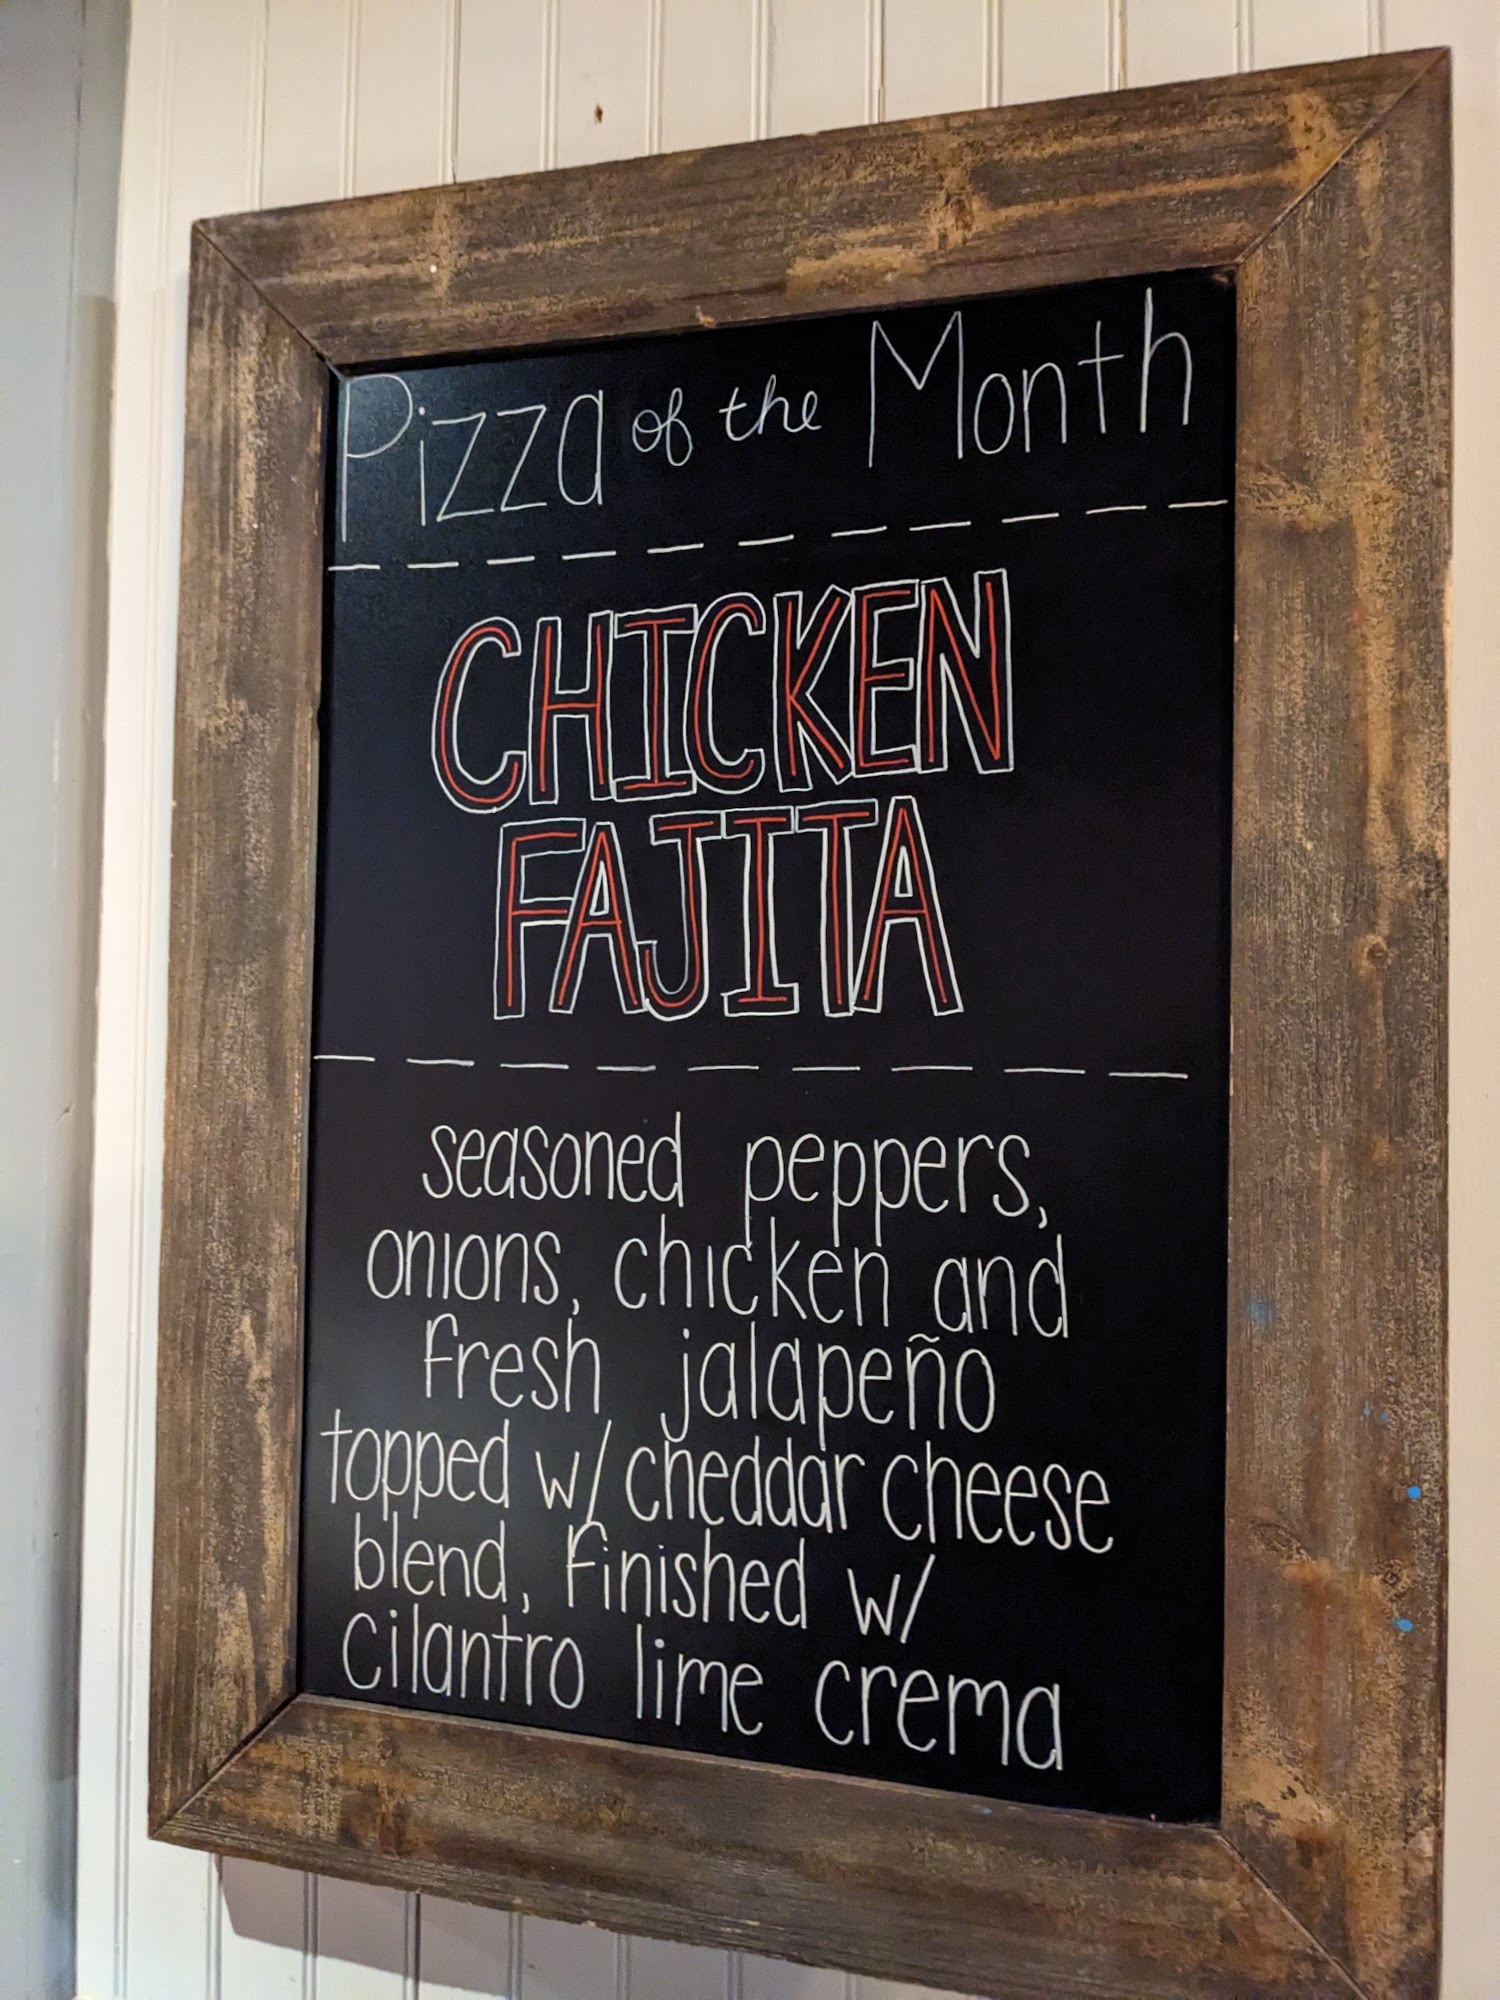 Pizza of the Month
CHICKEN
FAJITA
seasoned peppers,
onions, chicken and
fresh jalapeño
topped w/ cheddar cheese
blend, finished w/
cilantro lime crema